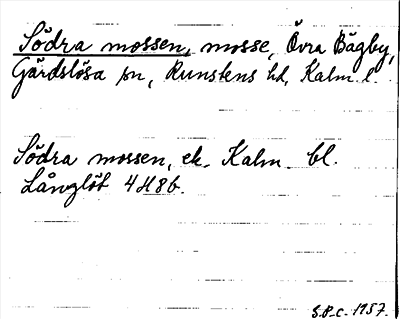 Södra mossen, mosse, Övra Bägby,
Gärdslösa sn, Runstens hd, Kalm. l.
Södra mossen, ek. Kalm. bl.
Långlöt 4H8b.
S.P-c. 1957.